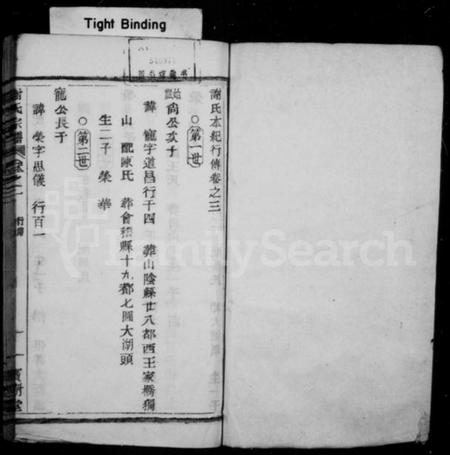 Tight Binding
謝氏本紀行傳卷之三
○第一世
始遷尚公次子
諱寵字道昌行千四 葬山陰縣廿八都西王家橋獨
山 配陳氏 葬會稽縣十九都七圖大湖頭
生二子 榮 華
○第二世
寵公長子
諱榮字思儀 行百一
謝氏宗譜 卷之三 行傳 一 寶樹堂
FamilySearch